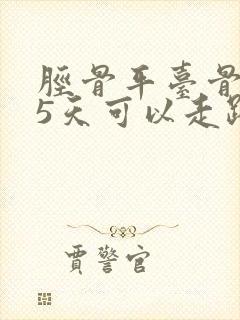 脛骨平臺骨
5天可以走路
賈警官